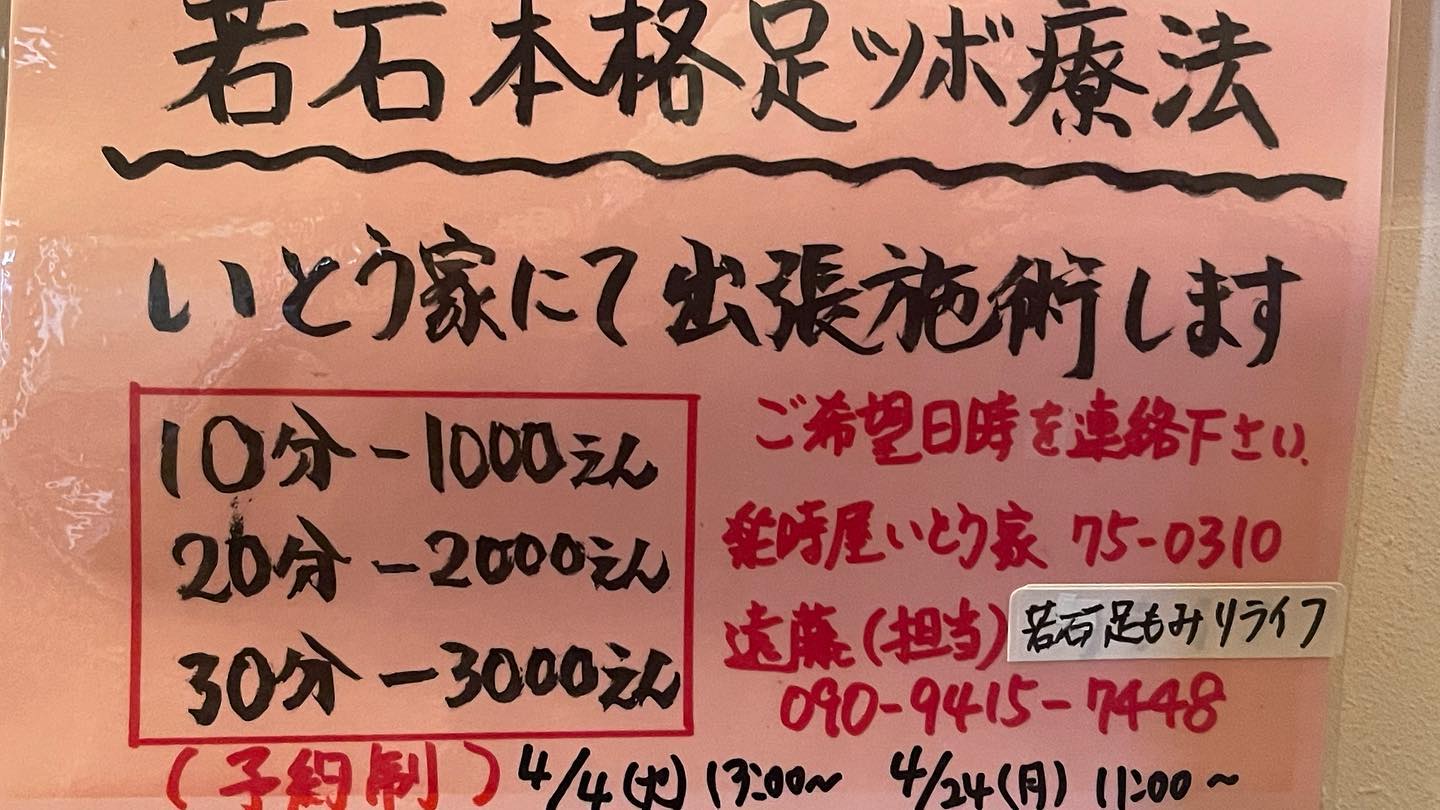 若石本格足ツボ療法
いとう家にて出張施術します
10分-1000えん
20分-2000えん
30分-3000えん
ご希望日時を連絡下さい。
楽時屋いとう家 75-0310
遠藤(担当)若石足もみリライフ
090-9415-7448
(予約制) 4/4(火) 13:00~ 4/24(月) 11:00~